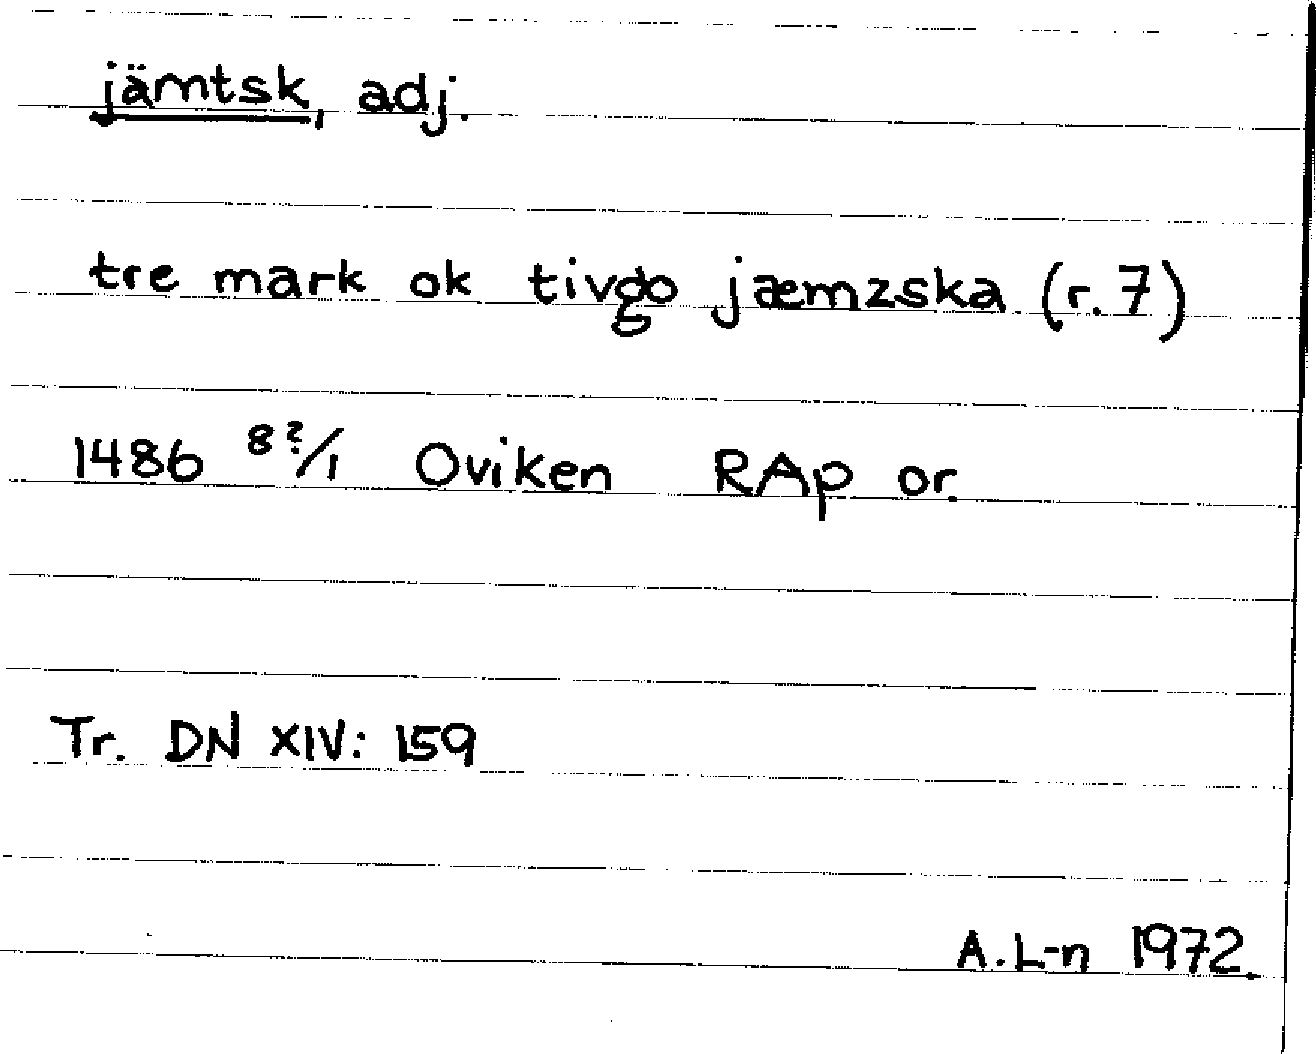 jämtsk, adj.
tre mark ok tivgo jæmzska (r. 7)
1486 8?/1 Oviken RAp or.
Tr. DN XIV: 159
A. L-n 1972.